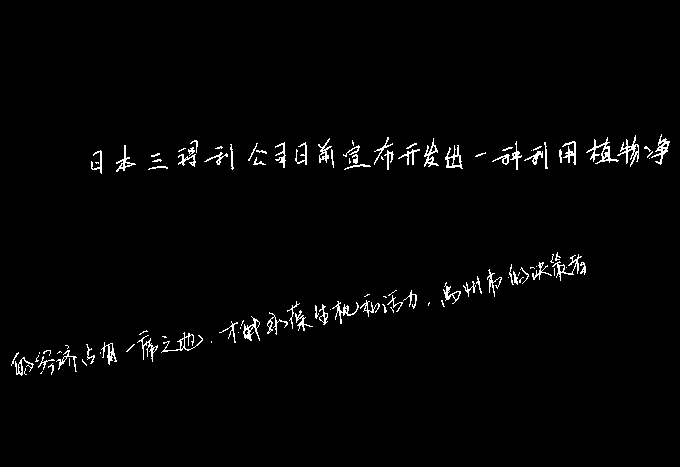 日本三得利公司日前宣布开发出一种利用植物净
的经济占有一席之地，才能永葆生机和活力，禹州市的决策者